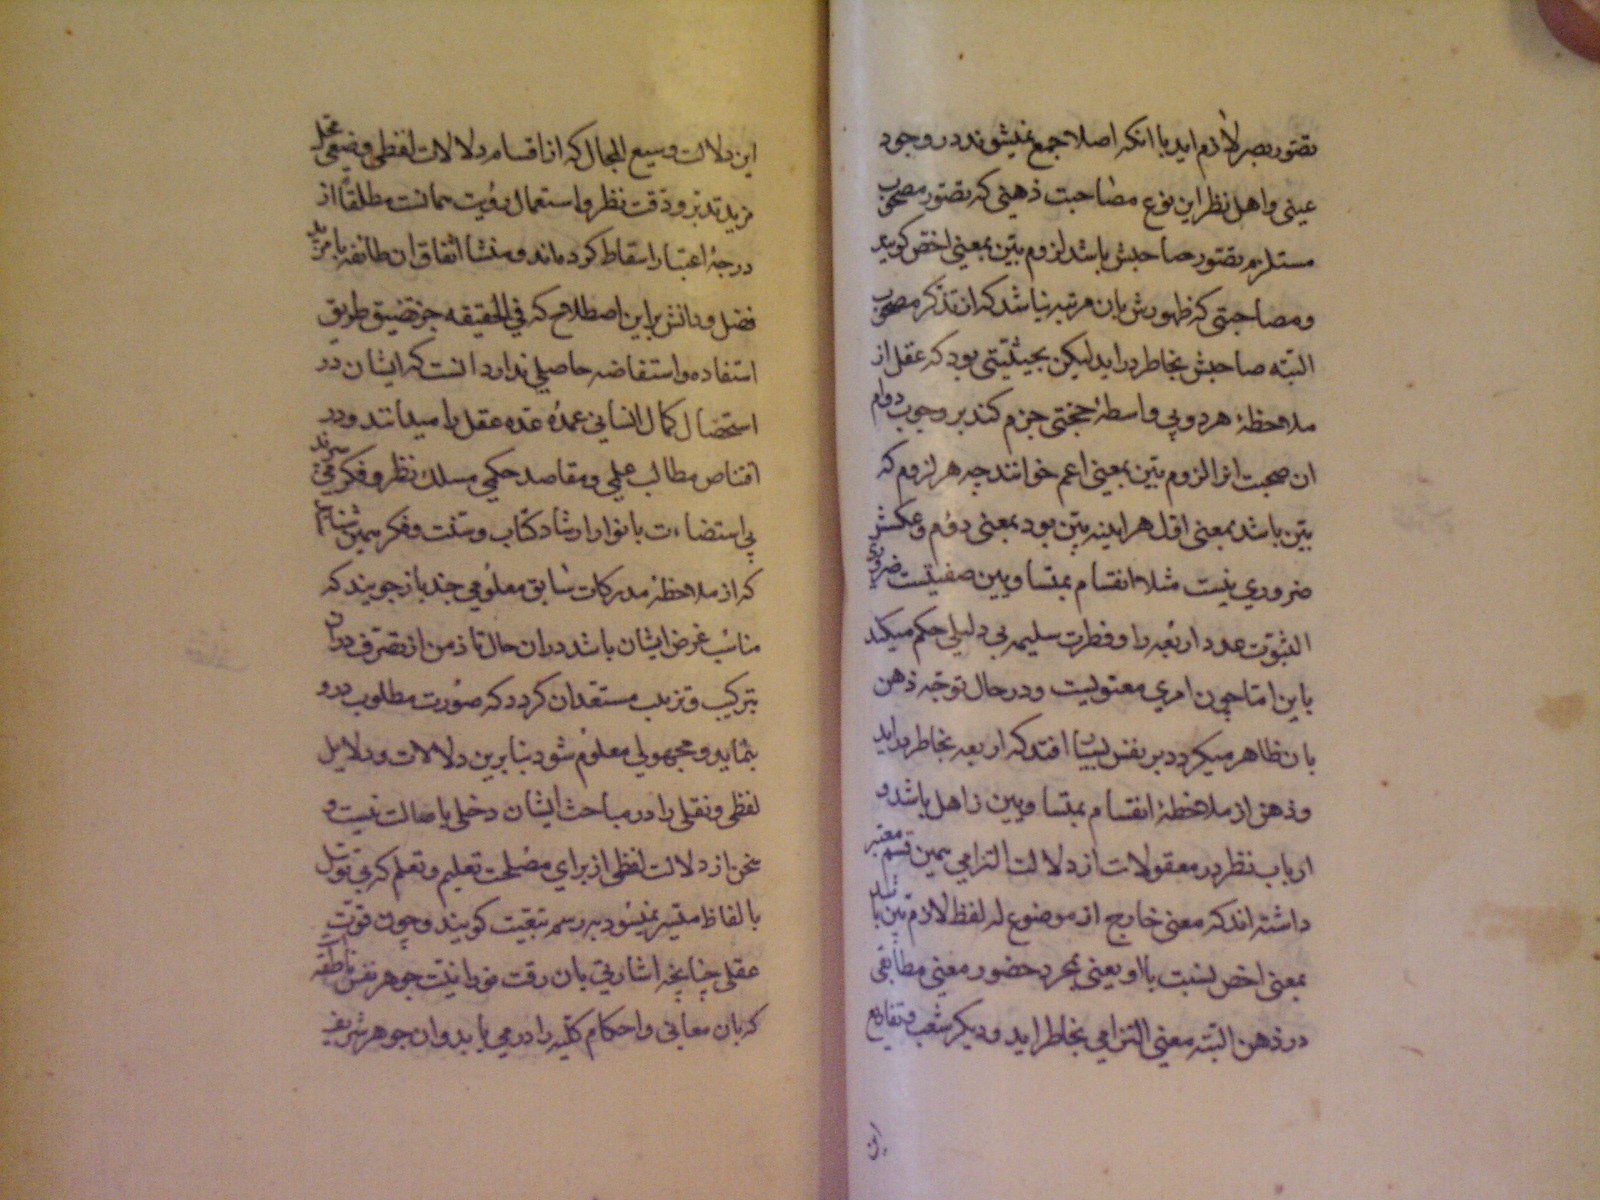 تصور بصر لازم اید با انکه اصلا جمع نمیشوند در وجود
عینی و اهل نظر این نوع مصاحبت ذهنی که تصور مصحوب
مستلزم تصور صاحبش باشد لزوم بیّن بمعنی اخصّ کویند
و مصاحبتی که ظهورش بان مرتبه نباشد که از تذکر مصحوب
البته صاحبش بخاطر دراید لیکن بحیثیّتی بود که عقل از
ملاحظهٔ هر دو بی واسطهٔ حجّتی جزم کند بر وجوب دوام
ان صحبت انرا لزوم بیّن بمعنی اعم خوانند چه هر لزوم که
بیّن باشد بمعنی اوّل هراینه بیّن بود بمعنی دوُم و عکسش
ضروری نیست مثلا انقسام بمتساویین صفتیست ضروری
الثبوت عدد اربعه را و فطرت سلیمه بی دلیلی حکم میکند
باین امّا چون امری معنویست و در حال توجّه ذهن
بان ظاهر میکردد بر نفس بسیار افتد که اربعه بخاطر دراید
و ذهن از ملاحظهٔ انقسام بمتساویین ذاهل باشد و
ارباب نظر در معقولات از دلالت التزامی همین قسم معتبر
داشته اند که معنی خارج از موضوع له لفظ لازم بیّن باشد
بمعنی اخص نسبت با او یعنی بمجرد حضور معنی مطابقی
در ذهن البته معنی التزامی بخاطر اید و دیکر شعب و تفاریع
این
این دلالت وسیع المجال که از اقسام دلالات لفظی وضعی محل
مزید تدبّر و دقت نظر و استعمال رویّت همانست مطلقًا از
درجهٔ اعتبار اسقاط کرده‌اند و منشا اتفاق ان طائفه با مزید
فضل و دانش بر این اصطلاح که فی الحقیقه جز تضییق طریق
استفاده و استفاضه حاصلی ندارد انست که ایشان در
استحصال کمال انسانی عمدهٔ عدّه عقل را میدانند و در
اقتناص مطالب علمی و مقاصد حکمی مسلک نظر و فکر می سپرند
بی استضاءت بانوار ارشاد کتاب و سنّت و فکر همین شناسند
که از ملاحظهٔ مدرکات سابق معلومی چند باز جویند که
مناسب غرض ایشان باشد دران حال تا ذهن از تصرّف دران
بترکیب و ترتیب مستعدان کردد که صورت مطلوب درو
بنماید و مجهولی معلوم شود بنا برین دلالات و دلایل
لفظی و نقلی را در مباحث ایشان دخلی باصالت نیست و
سخن از دلالت لفظی از برای مصلحت تعلیم و تعلم که بی توسّل
بالفاظ میّسر نمیشود بر رسم تبعیّت کویند و چون قوّت
عقلی چنانچه اشارتی بان رفت نورانیّت جوهر نفس ناطقه
که بان معانی و احکام کلیّه را درمی یابد و ان جوهر شریف